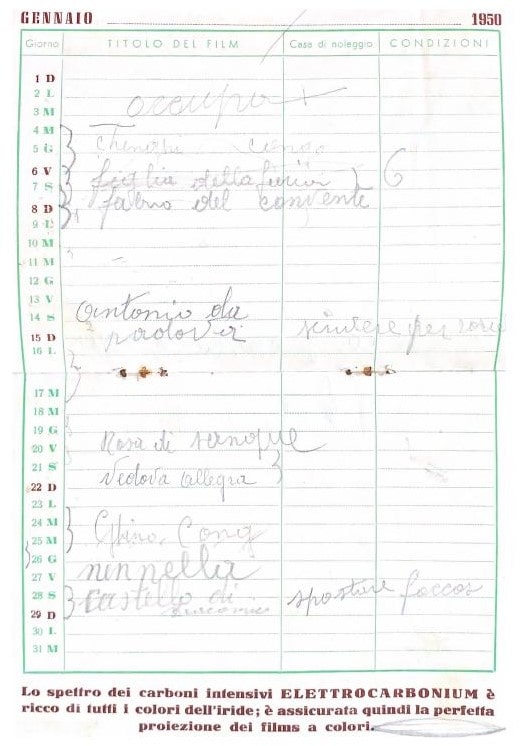 GENNAIO 1950
Giorno TITOLO DEL FILM Casa di noleggio CONDIZIONI
1 D
2 L
3 M occupato
4 M
5 G
6 V figlia della 6
7 S
8 D del convento
9 L
10 M
11 M
12 G
13 V antonio da
14 S
15 D padova
16 L
17 M
18 M
19 G
20 V Rosa di sangue
21 S
22 D Vedova allegra
23 L
24 M
25 M
26 G
27 V
28 S Castello di spostare
29 D
30 L
31 M
Lo spettro dei carboni intensivi ELETTROCARBONIUM è
ricco di tutti i colori dell'iride; è assicurata quindi la perfetta
proiezione dei films a colori.